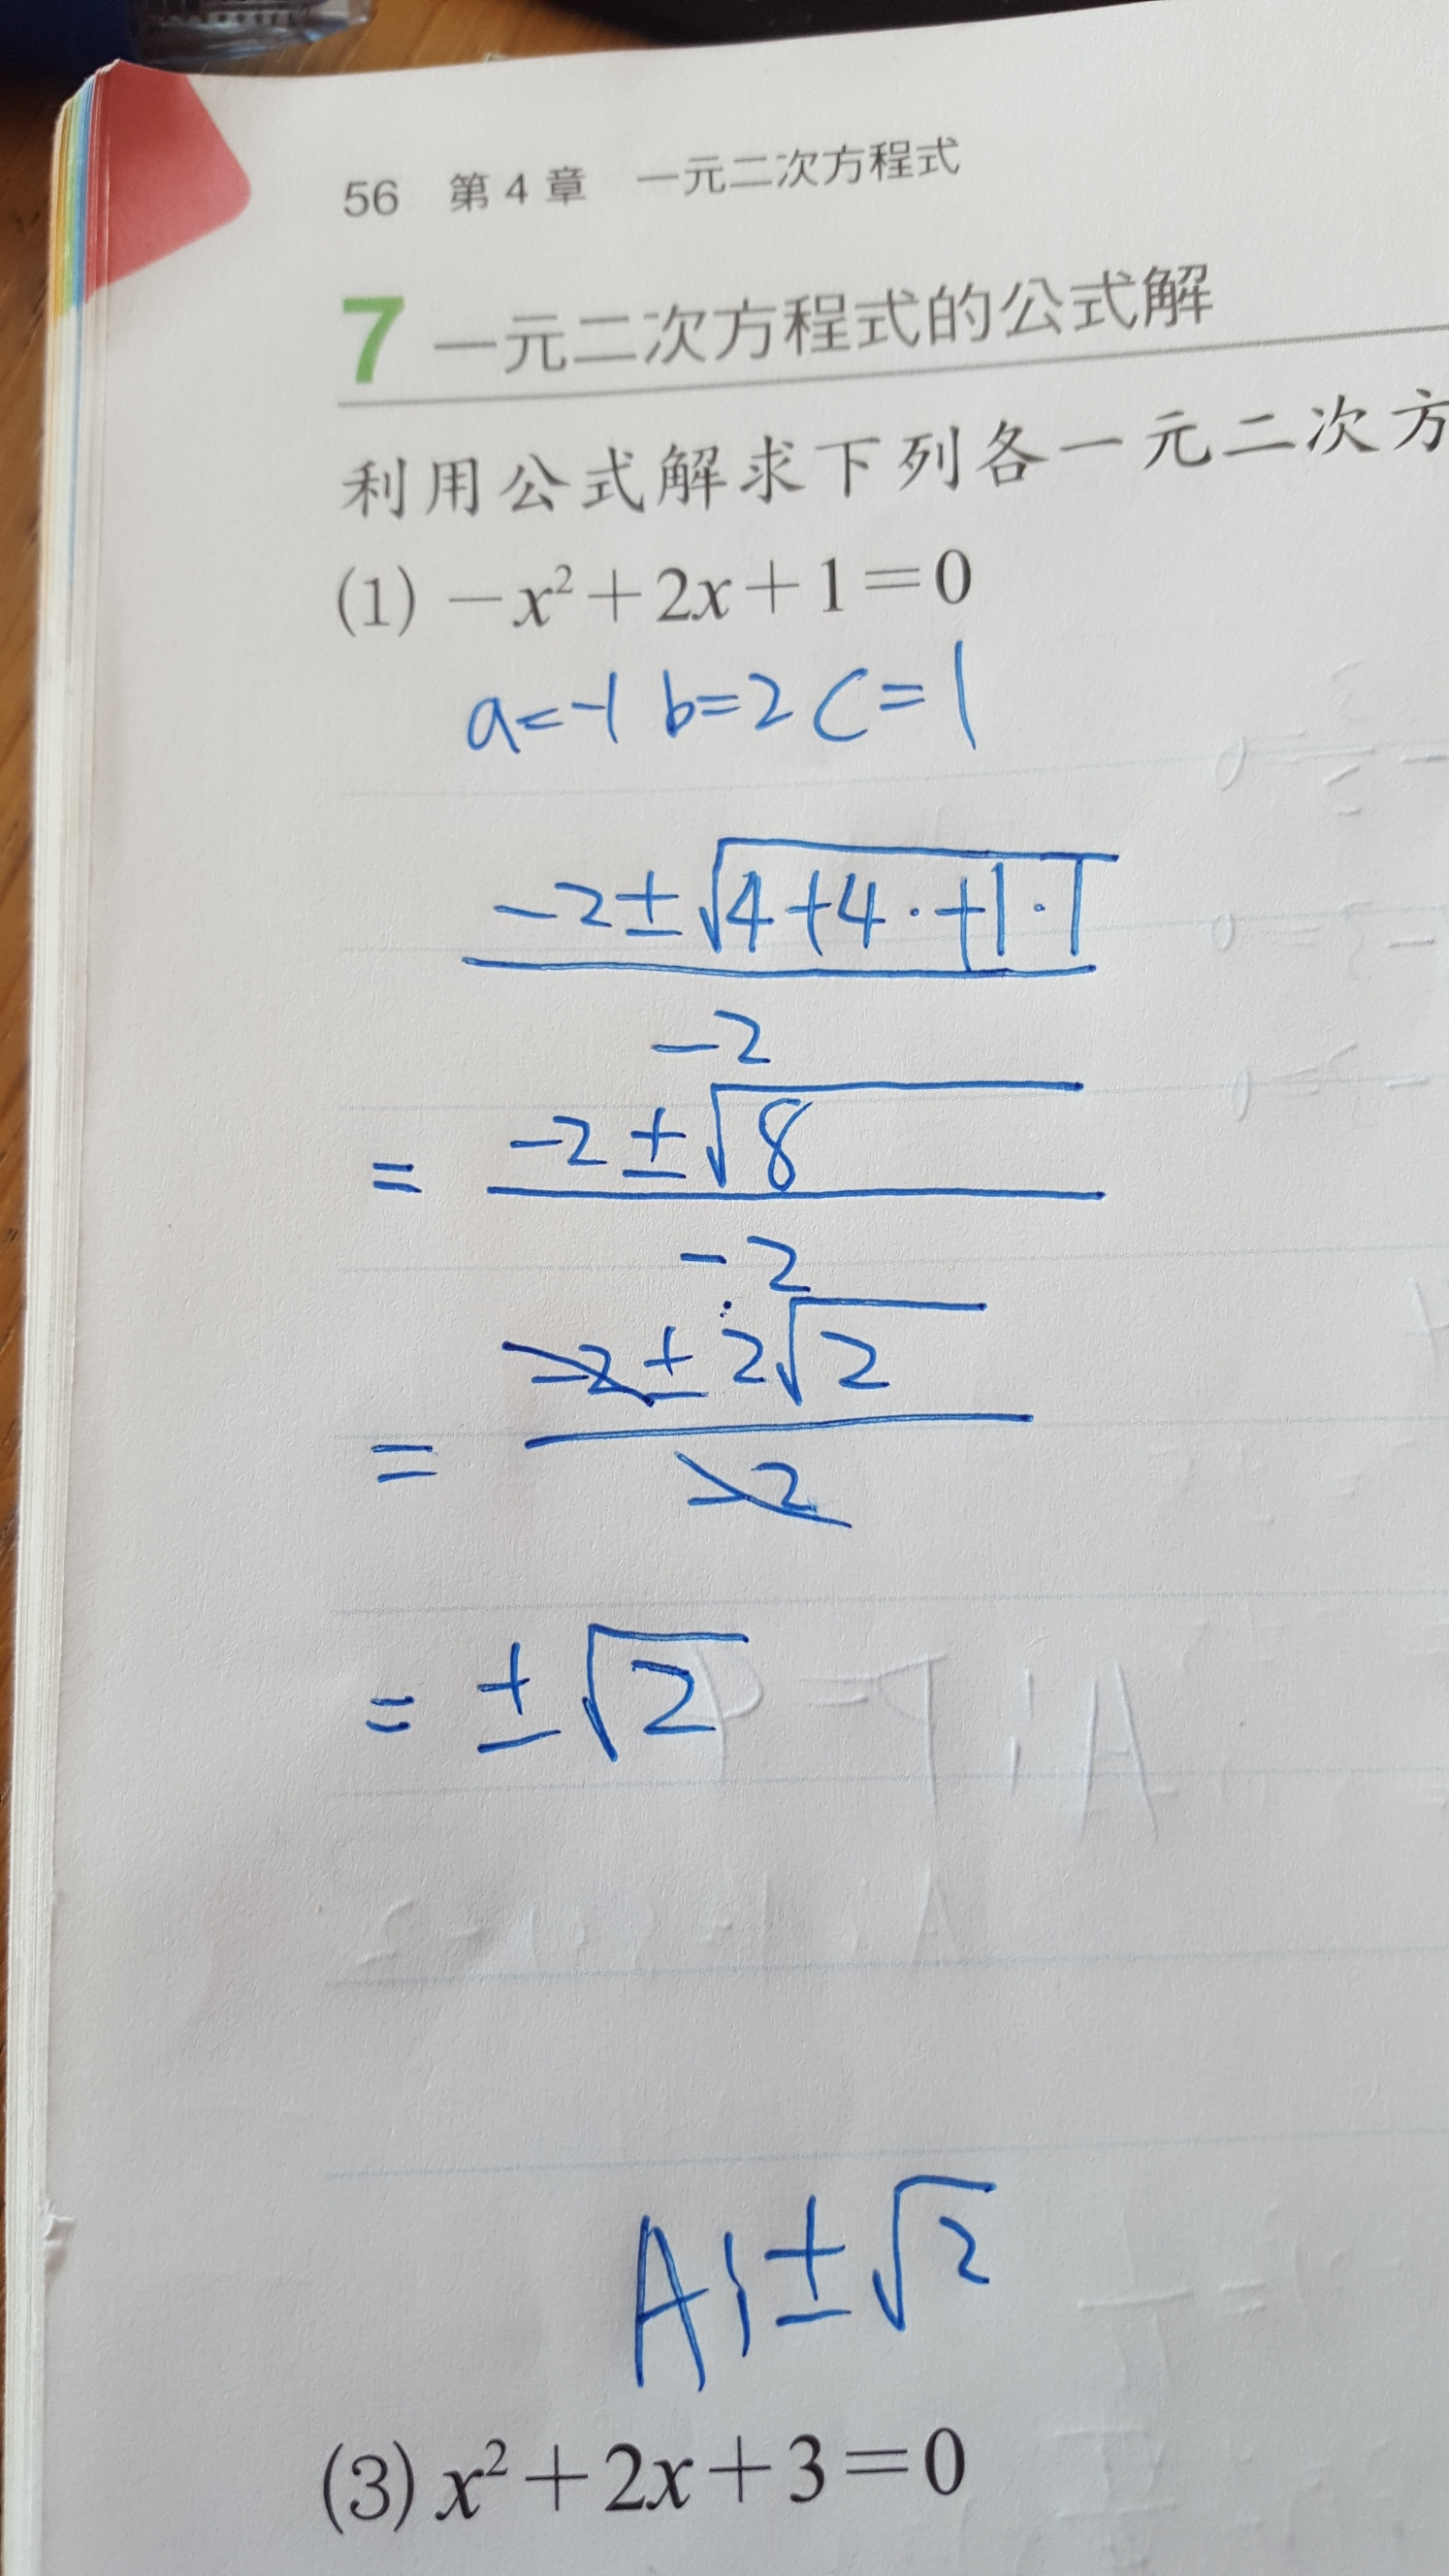 56 第4章 一元二次方程式
7 一元二次方程式的公式解
利用公式解求下列各一元二次方
(1) −x²+2x+1=0
a=-1 b=2 c=1
-2±√4+4·+1·1
-2
= -2±√8
-2
= -2±2√2
-2
= ±√2
A:±√2
(3) x²+2x+3=0